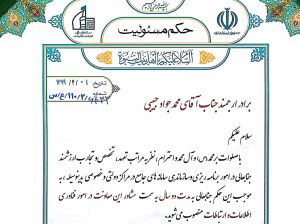 حکم مسئولیت
السلام علیک یا فاطمة الزهرا
تاریخ: ۱۳۹۹/۰۴/۰۱
شماره:
برادر ارجمند جناب آقای محمد جواد حبیبی
سلام علیکم
با صلوات بر محمد (ص) و آل محمد و احترام، نظر به مراتب تعهد، تخصص و تجارب ارزشمند
جنابعالی در امور برنامه ریزی و سازماندهی سامانه های جامع در مراکز دولتی و خصوصی بدینوسیله، به
موجب این حکم جنابعالی به مدت دو سال به سمت مشاور این معاونت در امور فناوری
اطلاعات و ارتباطات منصوب می شوید.